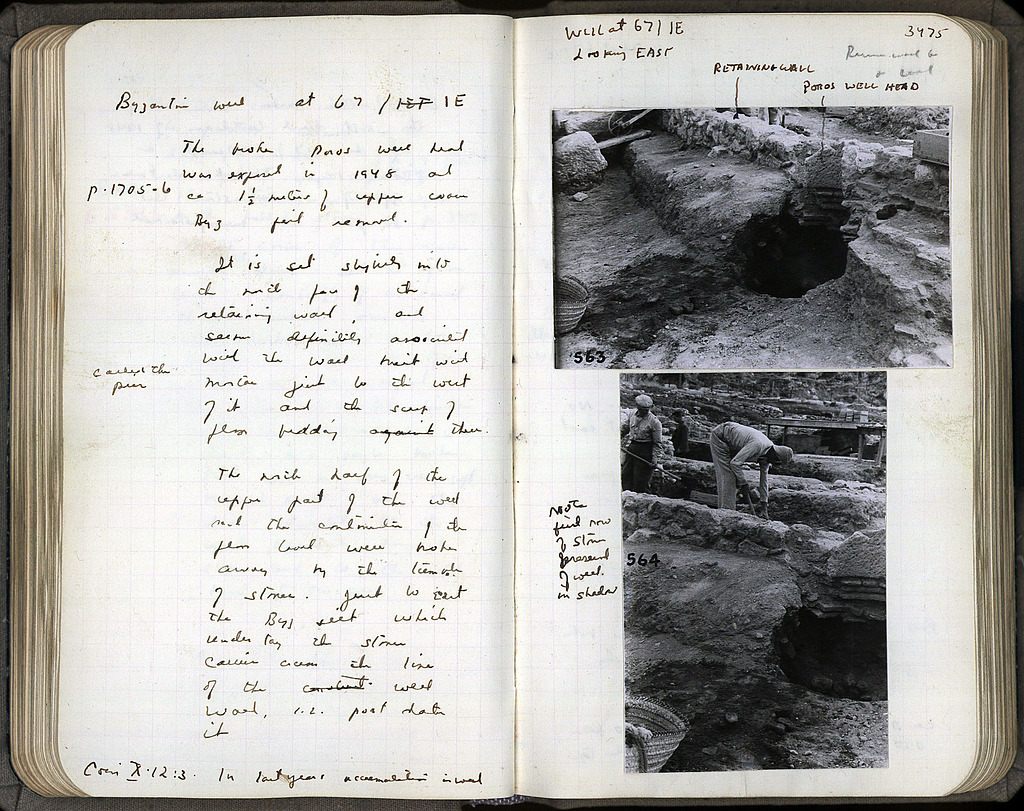 Byzantine well at 67 / 1E
The broken Poros well head
was exposed in 1948 and
p. 1705-6
ca 1½ meters of upper
Byz removed.
It is set slightly into
the north face of the
retaining wall, and
seems definitely associated
with the wall
called the
pier
mortar just to the west
of it and the scrap of
floor bedding against them.
The north half of the
upper part of the well
and the continuation of the
floor were broken
away by the tumble
of stones. Just to east
the Byz which
under lay the stones
across the line
of the well
wall, i.e. post date
it
Coin X.12:3. In last years accumulation in well
Well at 67/1E
Looking EAST
3475
RETAINING WALL
POROS WELL HEAD
563
Note
first row
of stones
of well
in shadow
564